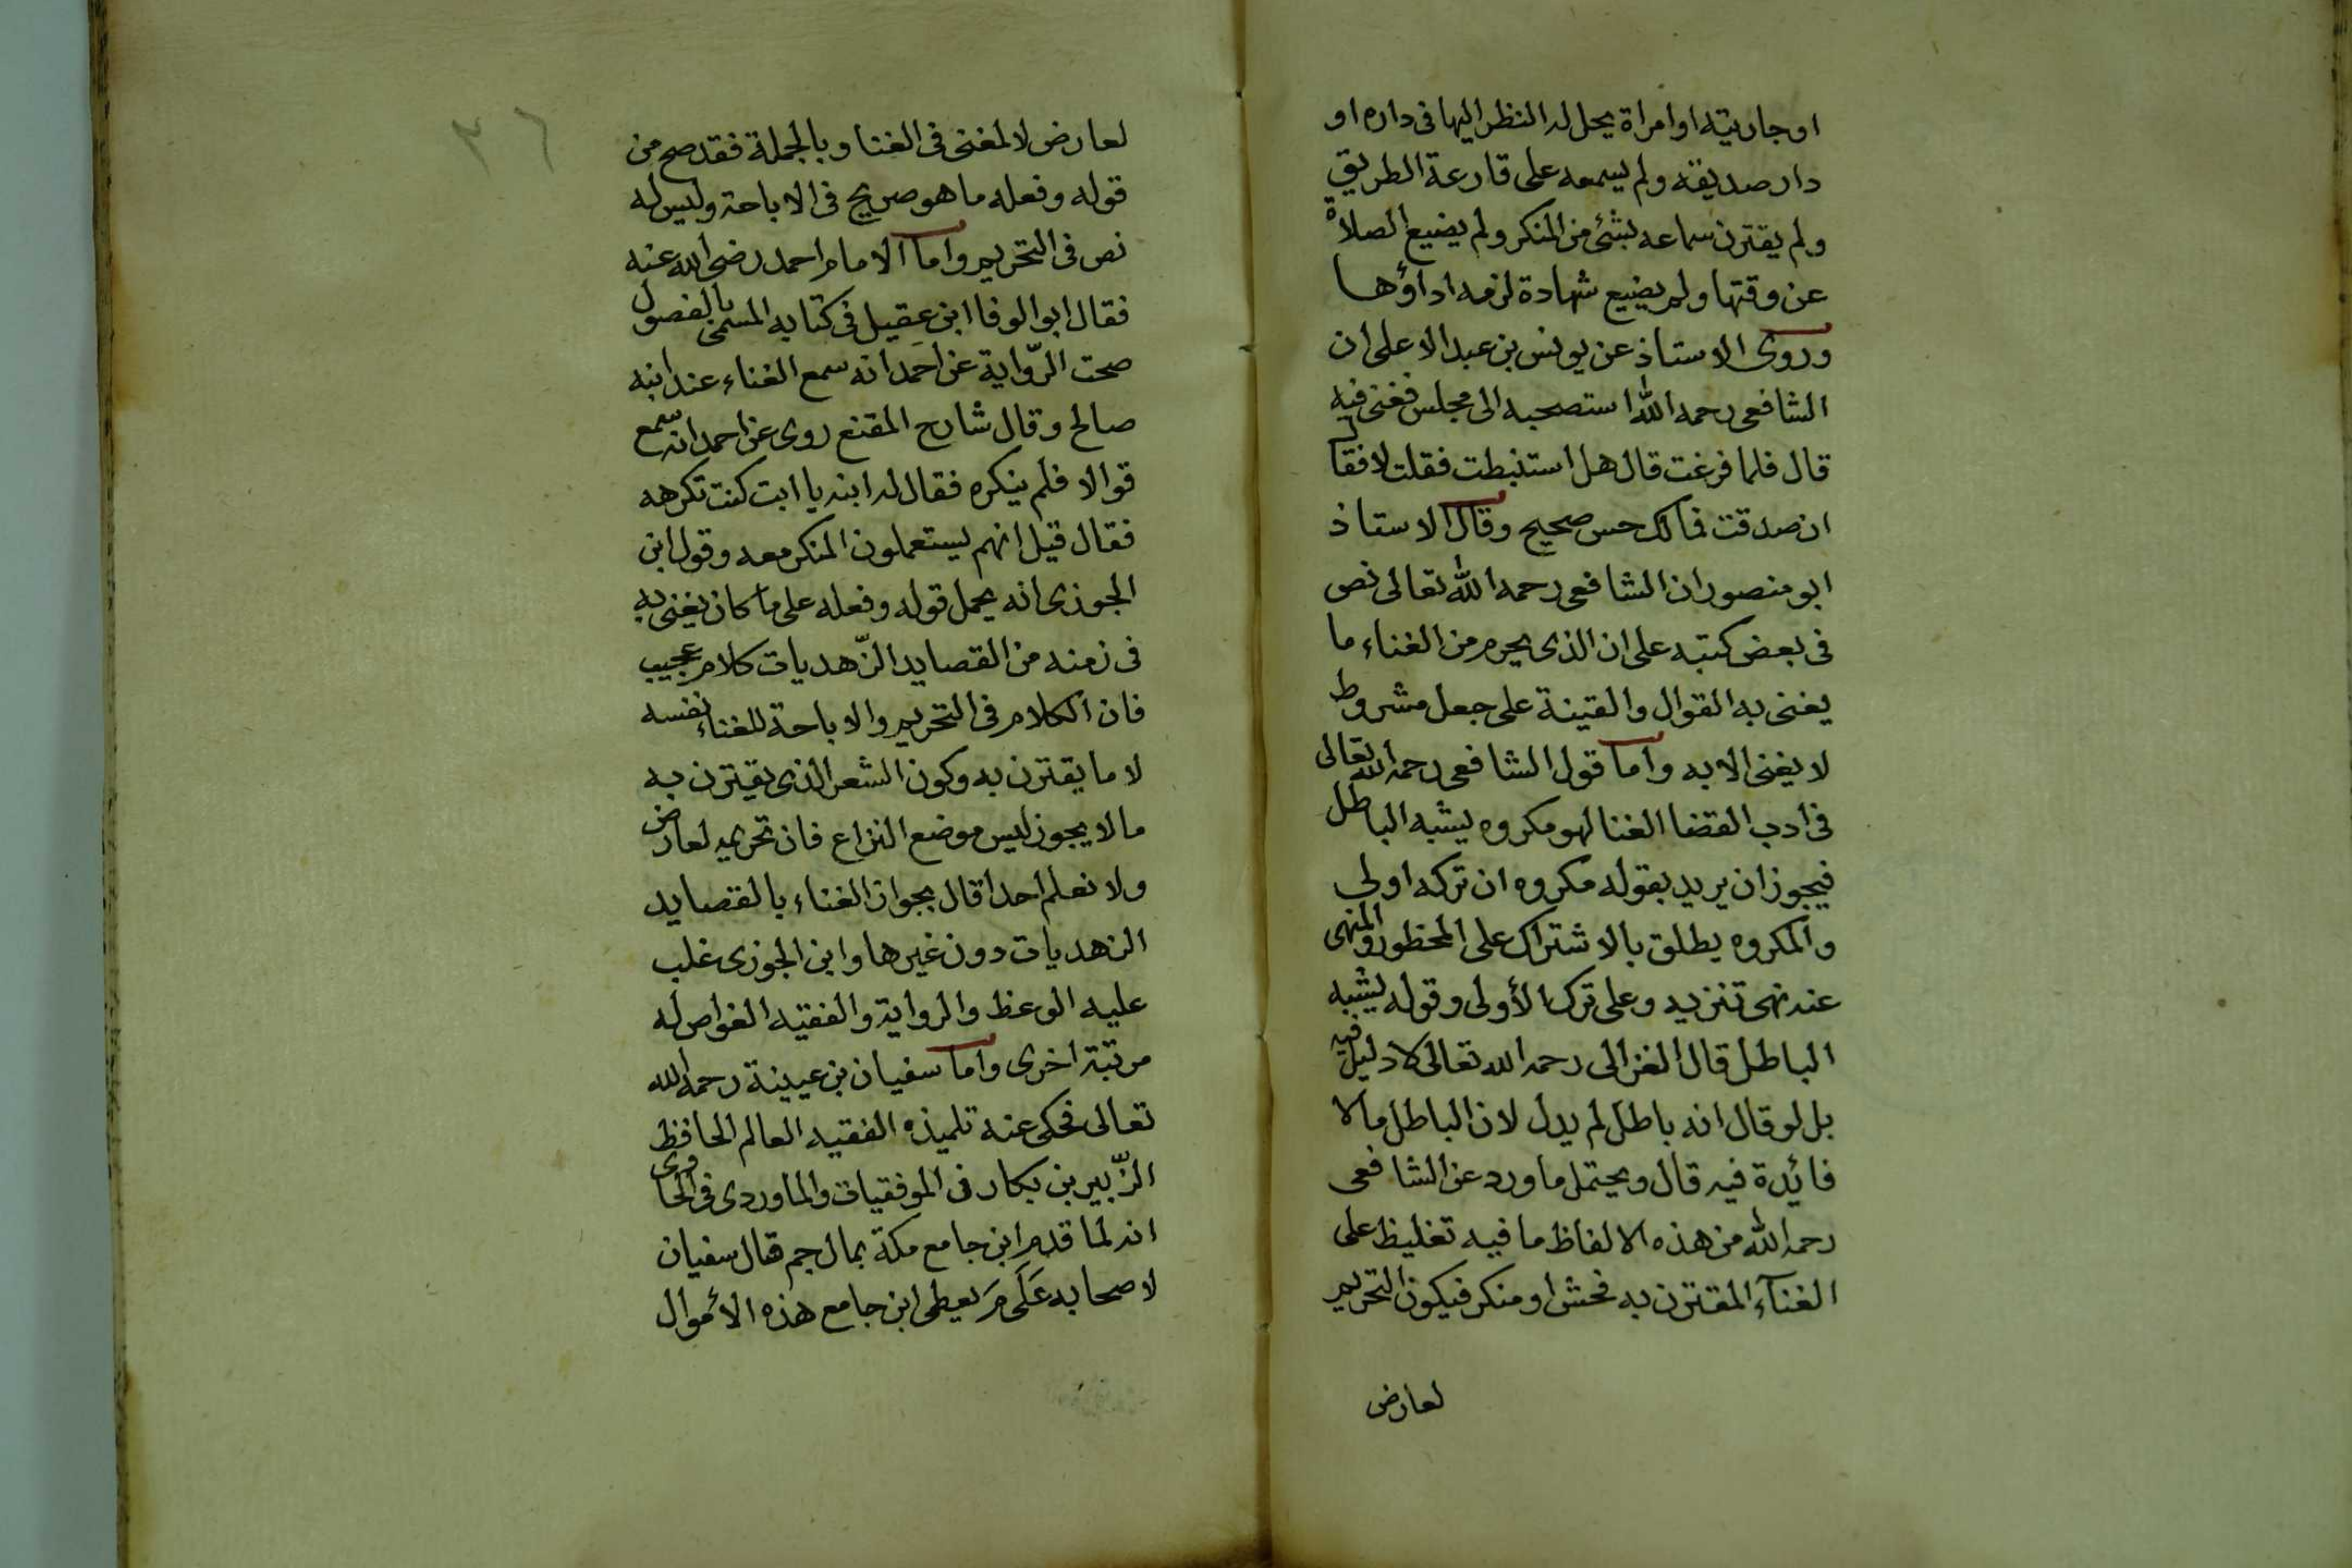 او جاريته او امراة يحل له النظر اليها فى داره او
دار صديقه ولم يسمعه على قارعة الطريق
ولم يقترن سماعه بشئ من المنكر ولم يضيع الصلاة
عن وقتها ولم يضيع شهادة لزمه اداؤها
وروى الاستاذ عن يونس بن عبد الاعلى ان
الشافعى رحمه الله استصحبه الى مجلس فغنى فيه
قال فلما فرغت قال هل استنبطت فقلت لا فقال
ان صدقت فمالك حس صحيح وقال الاستاذ
ابو منصور ان الشافعى رحمه الله تعالى نص
فى بعض كتبه على ان الذى يحرم من الغناء ما
يغنى به القوال والقينة على جعل مشروط
لا يغنى الا به واما قول الشافعى رحمه الله تعالى
فى ادب القضا الغنا لهو مكروه يشبه الباطل
فيجوز ان يريد بقوله مكروه ان تركه اولى
والمكروه يطلق بالاشتراك على المحظور والمنهى
عنه نهى تنزيه وعلى ترك الأولى وقوله يشبه
الباطل قال الغزالى رحمه الله تعالى لا دليل فيه
بل لو قال انه باطل لم يدل لان الباطل ما لا
فائدة فيه قال ويحتمل ما ورد عن الشافعى
رحمه الله من هذه الالفاظ ما فيه تغليظ على
الغنآء المقترن به فحش او منكر فيكون التحريم
لعارض
٢٦
لعارض لا لمغنى فى الغنا وبالجملة فقد صح من
قوله وفعله ما هو صريح فى الاباحة وليس له
نص فى التحريم واما الامام احمد رضى الله عنه
فقال ابو الوفا ابن عقيل فى كتابه المسمى بالفصول
صحت الرّواية عن احمد انه سمع الغناء عند ابنه
صالح وقال شارح المقنع روى عن احمد انه سمع
قوالا فلم ينكره فقال له ابنه يا ابت كنت تكرهه
فقال قيل انهم يستعملون المنكر معه وقول ابن
الجوزى انه يحمل قوله وفعله على ما كان يغنى به
فى زمنه من القصايد الزّهديات كلام عجيب
فان الكلام فى التحريم والاباحة للغناء نفسه
لا ما يقترن به وكون الشعر الذى يقترن به
ما لا يجوز ليس موضع النزاع فان تحريمه لعارض
ولا نعلم احدا قال بجواز الغناء بالقصايد
الزهديات دون غيرها وابن الجوزى غلب
عليه الوعظ والرواية والفقيه الغواص له
مرتبة اخرى واما سفيان بن عيينة رحمه الله
تعالى فحكى عنه تلميذه الفقيه العالم الحافظ
الزّبير بن بكار فى الموفقيات والماوردى فى الحاوى
انه لما قدم ابن جامع مكة بمال جم قال سفيان
لاصحابه عَلَى مَ يعطى ابن جامع هذه الأموال